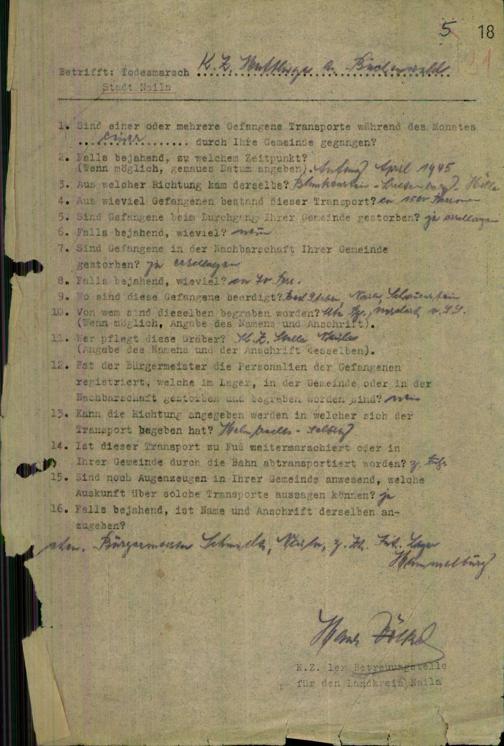 5 18
Betrifft: Todesmarsch K.Z. Häftlinge a. Buchenwald
Stadt Naila
1. Sind einer oder mehrere Gefangene Transporte während des Monates
einer durch Ihre Gemeinde gegangen?
2. Falls bejahend, zu welchem Zeitpunkt?
(Wenn möglich, genaues Datum angeben). Anfang April 1945
3. Aus welcher Richtung kam derselbe? Blankenstein -
4. Aus wieviel Gefangenen bestand dieser Transport?
5. Sind Gefangene beim Durchgang Ihrer Gemeinde gestorben? ja erschlagen
6. Falls bejahend, wieviel?
7. Sind Gefangene in der Nachbarschaft Ihrer Gemeinde
gestorben? ja erschlagen
8. Falls bejahend, wieviel?
9. Wo sind diese Gefangene beerdigt? Naila, Schauenstein
10. Von wem sind dieselben begraben worden?
(Wenn möglich, Angabe des Namens und Anschrift).
11. Wer pflegt diese Gräber? K.Z. Stelle Naila
(Angabe des Namens und der Anschrift desselben).
12. Hat der Bürgermeister die Personalien der Gefangenen
registriert, welche im Lager, in der Gemeinde oder in der
Nachbarschaft gestorben und begraben worden sind? nein
13. Kann die Richtung angegeben werden in welcher sich der
Transport begeben hat? Helmbrechts - Selbitz
14. Ist dieser Transport zu Fuß weitermarschiert oder in
Ihrer Gemeinde durch die Bahn abtransportiert worden? z. Fuß
15. Sind noch Augenzeugen in Ihrer Gemeinde anwesend, welche
Auskunft über solche Transporte aussagen können? ja
16. Falls bejahend, ist Name und Anschrift derselben an-
zugeben?
Bürgermeister Naila, z. Zt. Int. Lager
Hammelburg
Hans Völkel
K.Z. ler Betreuungsstelle
für den Landkreis Naila